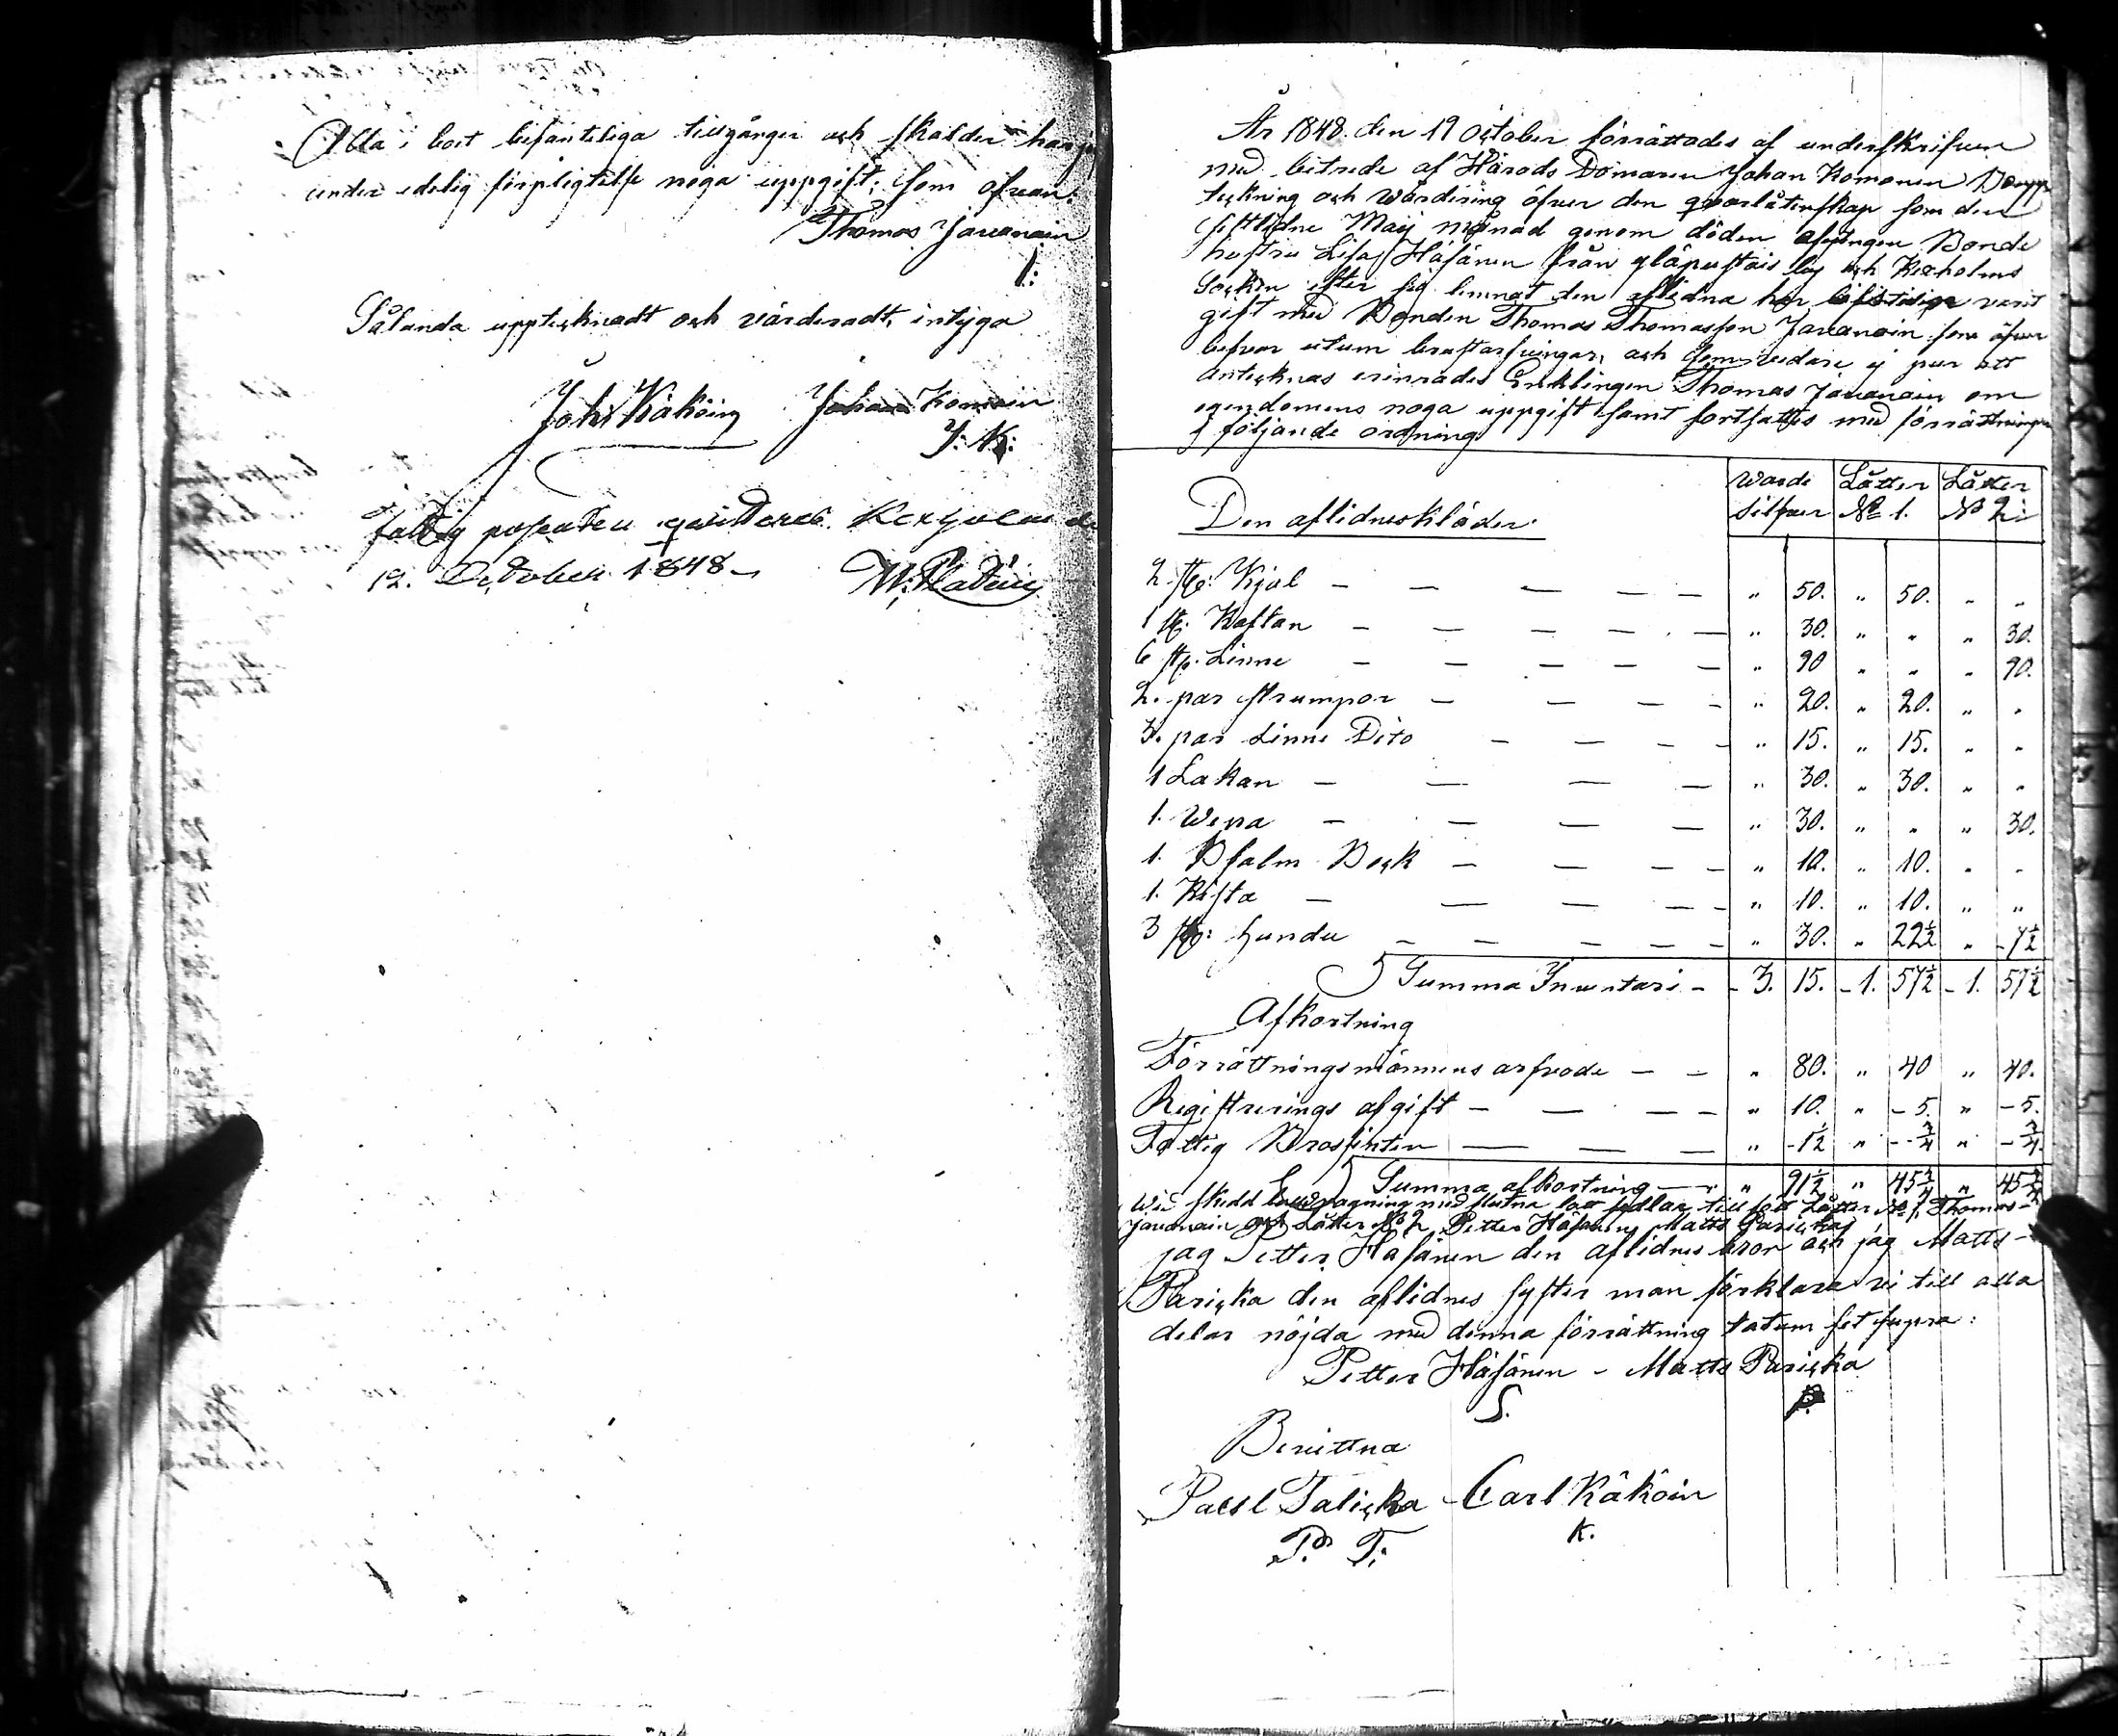 Alla i boet befinteliga tillgånger och skulder har jag
under edelig förpligtelse noga uppgift; som ofvan.
Thomas Javanain
Sålunda upptecknadt och värderadt, intyga
Joh: Käköin Johan Komoin
J: K:
fattig procenten qvitteras. Kexholm d
12. October 1848 –
År 1848. den 19 October förrättades af underskrifven
med biträde af Härads Domaren Johan Komonen Boupp
teckning och Wärdering öfver den qvarlåtenskap som den
sistledne Maij månad genom döden afgången Bonde
hustru Lisa Häsänen från by och Kexholms
Socken efter sig lemnat den aflidna har varit
gift med Bonden Thomas Thomasson Javanain som öfver
lefver utom bröstarfvingar, och som vidare ej var att
antecknas erinrades Enklingen Thomas Javanain om
egendomens noga uppgift samt fortsattes med förrättningen
i följande ordning
Den aflidnes kläder. Warde Silfver Låtter No 1. Låtter No 2:
2. st: Kjol — — — — — " 50. " 50. " "
1 st. Kaftan — — — — — " 30. " " " 30.
6 st. Linne — — — — — " 90 " " " 90.
2. par strumpor — — — — " 20. " 20. " "
3. par Linne Dito — — — — " 15. " 15. " "
1 Lakan — — — — " 30. " 30. " "
1. Wepa — — — — " 30. " " " 30.
1. Psalm Bock — — — — " 10. " 10. " "
1. Kista — — — — — " 10. " 10. " "
3 st: hundu — — — — — " 30. " 22½ " - 7½
Summa Inventari - - 3. 15. - 1. 57½ - 1. 57½
Afkortning
Förrättningsmännens arfvode — — " 80. " 40 " 40.
Registrerings afgift — — — — " 10. " - 5. " - 5.
Fattig Procenten — — — " - 1½ " - - ¾ " - ¾.
Summa afkortning — " 91½ " 45¾ " 45¾
Wid skedd med slutna lott sedlar till föll Låtter No 1. Thomas
Javanain och Låtter No 2 Petter Häsänen Matts Paricka
jag Petter Häsänen den aflidnes bror och jag Matts -
Paricka den aflidnes syster man förklara vi till alla
delar nöjda med denna förrättning datum ut supra:
Petter Häsänen - Matts Paricka
S. P.
Bevittna
Pavl Talicka Carl Käköin
P. T: K.